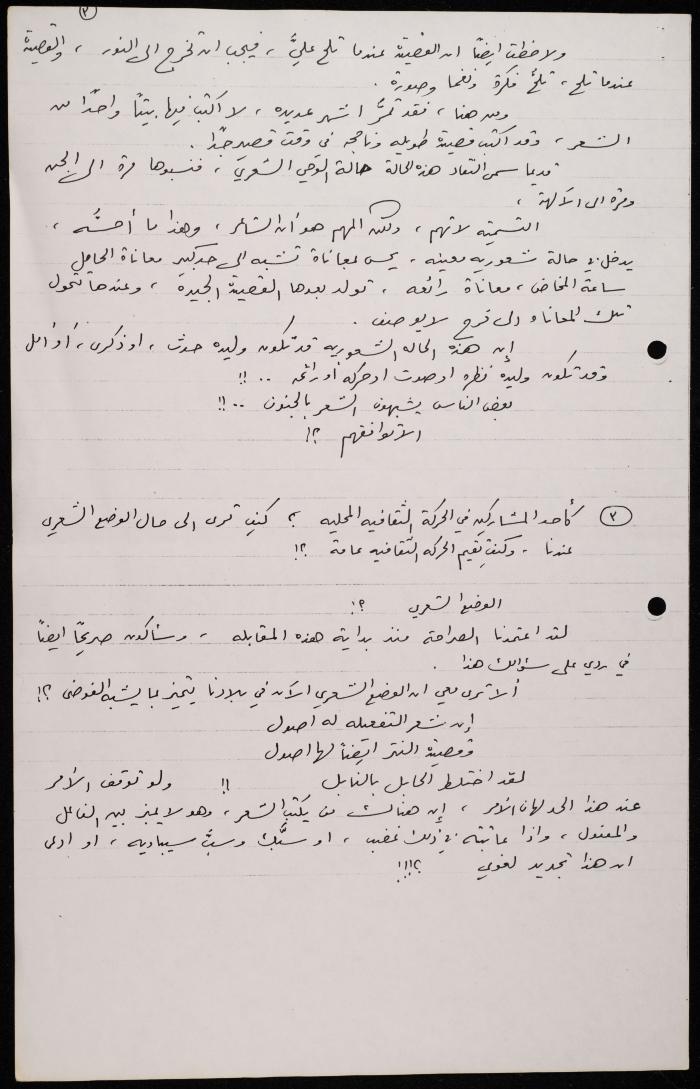 ٣
ولاحظت ايضاً ان القصيدة عندما تلح عليَّ ، فيجب ان تخرج الى النور ، والقصيدة
عندما تلح ، تلحُّ فكرة ونغما وصورة .
ومن هنا ، فقد تمرُّ اشهر عديده ، لا اكتب فيها بيتاً واحداً من
الشعر ، وقد اكتب قصيدة طويله وناجحه في وقت قصير جداً .
قديما سمى النقاد هذه الحالة حالة الوحي الشعري ، فنسبوها مرة الى الجن
ومرة الى الآلهة ،
التسمية لا تهم ، ولكن المهم هو أن الشاعر ، وهذا ما أحسُّه ،
يدخل في حالة شعوريه معينه ، يحس بمعاناة تشبه الى حد كبير معاناة الحامل
ساعة المخاض ، معاناة رائعه ، تولد بعدها القصيدة الجيدة ، وعندها تتحول
تلك المعاناة الى فرح لا يوصف .
إن هذه الحاله الشعوريه قد تكون وليدة حدث ، او ذكرى ، أو أمل
وقد تكون وليده نظره او صوت او حركه أو رائحه .. !!
بعض الناس يشبهون الشعر بالجنون .. !!
الا توافقهم ؟!
٣ كأحد المشاركين في الحركة الثقافيه المحليه ؟ كيف ترى الى حال الوضع الشعري
عندنا ، وكيف تقيم الحركه الثقافيه عامة ؟!
الوضع الشعري ؟!
لقد اعتمدنا الصراحة منذ بداية هذه المقابله ، وسأكون صريحاً ايضاً
في ردي على سؤالك هذا .
ألا ترى معي ان الوضع الشعري الآن في بلادنا يتميز بما يشبه الفوضى ؟!
إن شعر التفعيله له اصول
وقصيدة النثر ايضاً لها اصول
لقد اختلط الحابل بالنابل !! ولو توقف الأمر
عند هذا الحد لهان الأمر ، إن هنالك من يكتب الشعر ، وهو لا يميز بين الفاعل
والمفعول ، واذا عاتبته في ذلك غضب ، او سبَّك وسبَّ سيباويه ، او ادعى
ان هذا تجديد لغوي ؟!!!